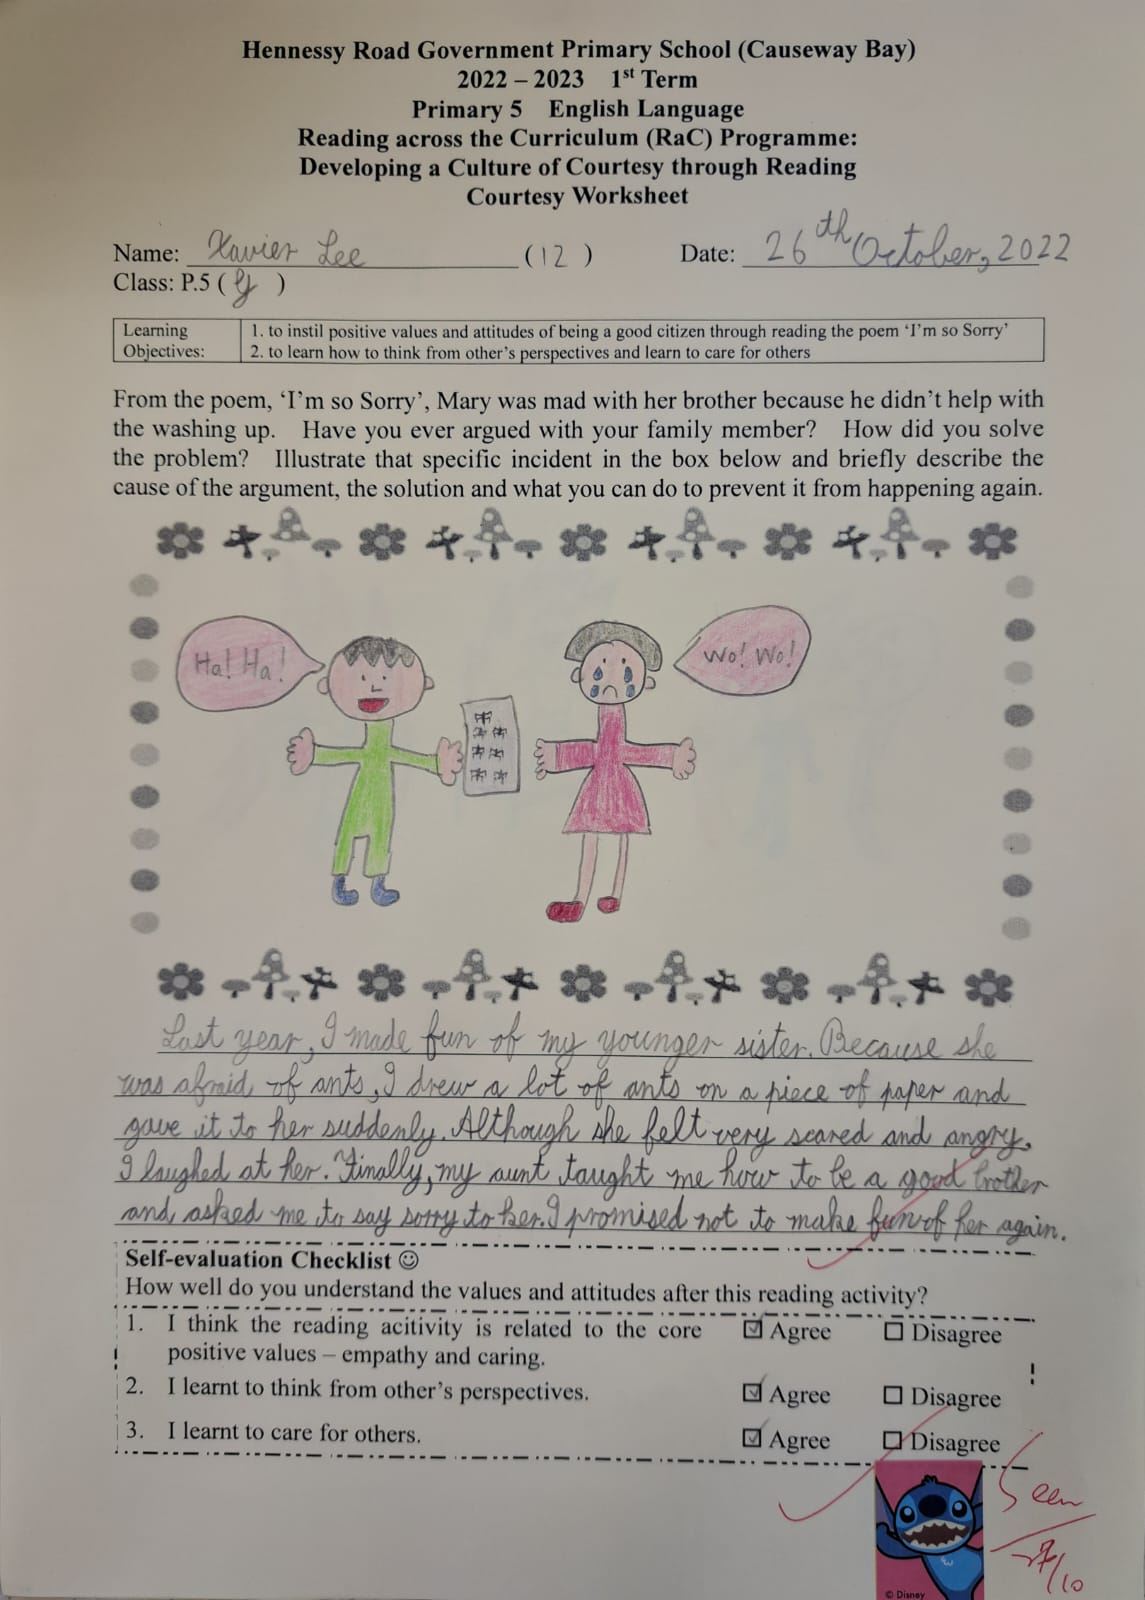 Hennessy Road Government Primary School (Causeway Bay)
2022 – 2023 1st Term
Primary 5 English Language
Reading across the Curriculum (RaC) Programme:
Developing a Culture of Courtesy through Reading
Courtesy Worksheet
Name: Xavier Lee (12) Date: 26th October, 2022
Class: P.5 (y)
Learning Objectives:
1. to instil positive values and attitudes of being a good citizen through reading the poem ‘I’m so Sorry’
2. to learn how to think from other’s perspectives and learn to care for others
From the poem, ‘I’m so Sorry’, Mary was mad with her brother because he didn’t help with
the washing up. Have you ever argued with your family member? How did you solve
the problem? Illustrate that specific incident in the box below and briefly describe the
cause of the argument, the solution and what you can do to prevent it from happening again.
Ha! Ha!
Wo! Wo!
Last year, I made fun of my younger sister. Because she
was afraid of ants, I drew a lot of ants on a piece of paper and
gave it to her suddenly. Although she felt very scared and angry,
I laughed at her. Finally, my aunt taught me how to be a good brother
and asked me to say sorry to her. I promised not to make fun of her again.
Self-evaluation Checklist ☺
How well do you understand the values and attitudes after this reading activity?
1. I think the reading acitivity is related to the core ☑ Agree ☐ Disagree
positive values – empathy and caring.
2. I learnt to think from other’s perspectives. ☑ Agree ☐ Disagree
3. I learnt to care for others. ☑ Agree ☐ Disagree
Seen
27/10
© Disney